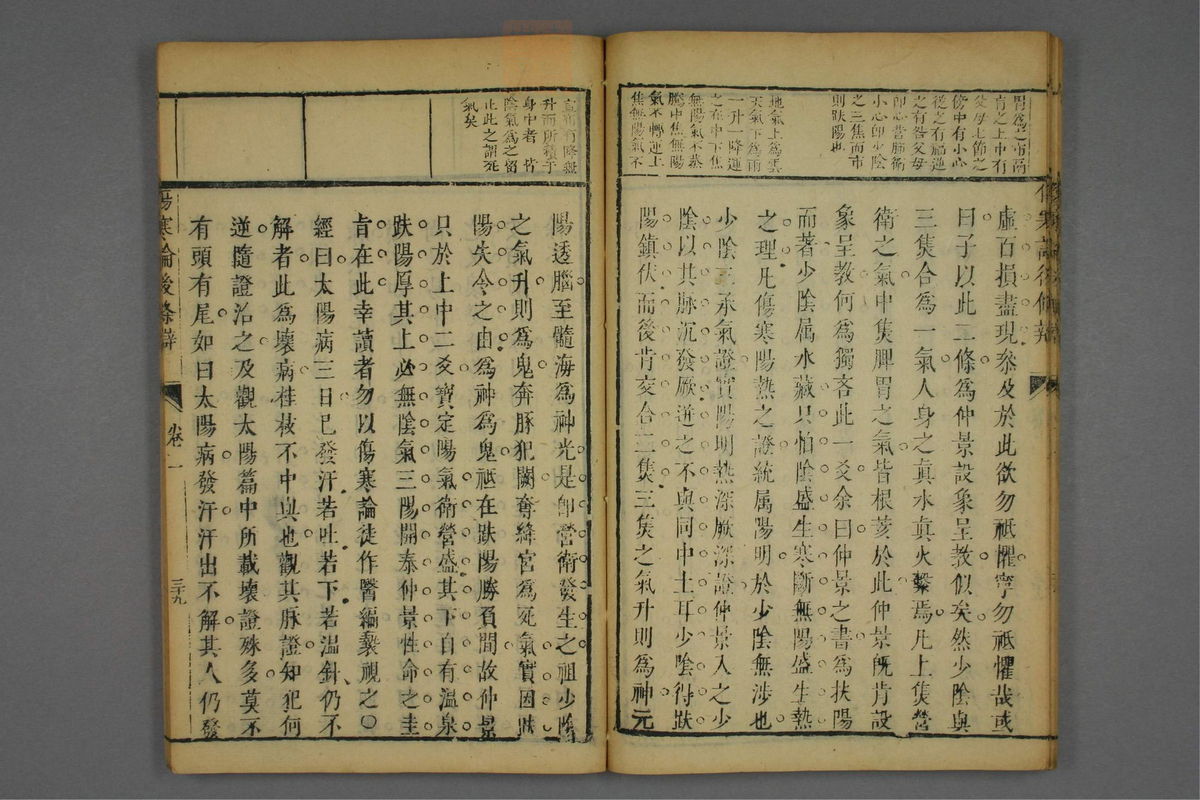 胃爲之市膈
肓之上中有
父母七節之
傍中有小心
從之有福逆
之有咎父母
卽心營肺衛
小心卽少陰
之三焦而市
則趺陽也
地氣上爲雲
天氣下爲雨
一升一降運
之在中下焦
無陽氣不蒸
騰中焦無陽
氣不轉運上
焦無陽氣不
虛百損盡現矣及於此欲勿祗懼寧勿祗懼哉或
曰子以此二條爲仲景設象呈教似矣然少陰與
三焦合爲一氣人身之眞水眞火繫焉凡上焦營
衛之氣中焦脾胃之氣皆根荄於此仲景旣肯設
象呈教何爲獨吝此一爻余曰仲景之書爲扶陽
而著少陰属水藏只怕陰盛生寒斷無陽盛生熱
之理凡傷寒陽熱之證統属陽明於少陰無涉也
少陰三承氣證實陽明熱深厥深證仲景入之少
陰以其脉沉發厥迸之不與同中土耳少陰得趺
陽鎮伏而後肯交合二焦三焦之氣升則爲神元
宣布有降無
升而所積于
身中者皆
陰氣爲之留
止此之謂死
氣矣
陽透腦至髓海爲神光是卽營衛發生之祖少陰
之氣升則爲鬼奔豚犯闕奪絳宮爲死氣實因趺
陽失令之由爲神爲鬼祗在趺陽勝負間故仲景
只於上中二爻寶定陽氣衛營盛其下自有溫泉
趺陽厚其上必無陰氣三陽開泰仲景性命之圭
旨在此幸讀者勿以傷寒論徒作醫編褻視之〇
經曰太陽病三日已發汗若吐若下若溫針仍不
解者此爲壞病桂枝不中與也觀其脉證知犯何
逆隨證治之及觀太陽篇中所載壞證殊多莫不
有頭有尾如曰太陽病發汗汗出不解其人仍發
傷寒論後條辯
卷一
三十九